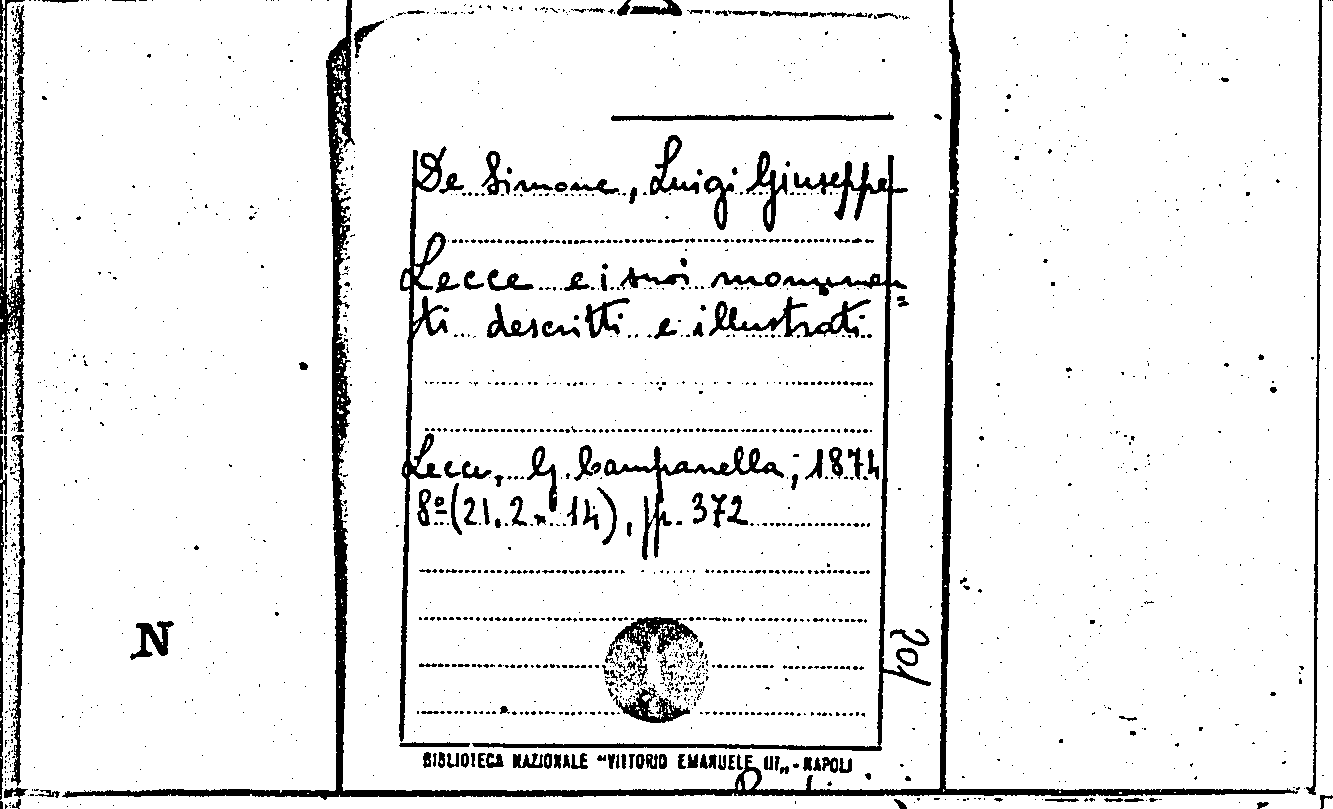 De Simone, Luigi Giuseppe
Lecce e i suoi monumen=
ti descritti e illustrati
Lecce, G. Campanella, 1874
8º (21.2 x 14), pp. 372
N
BIBLIOTECA NAZIONALE "VITTORIO EMANUELE III„ - NAPOLI